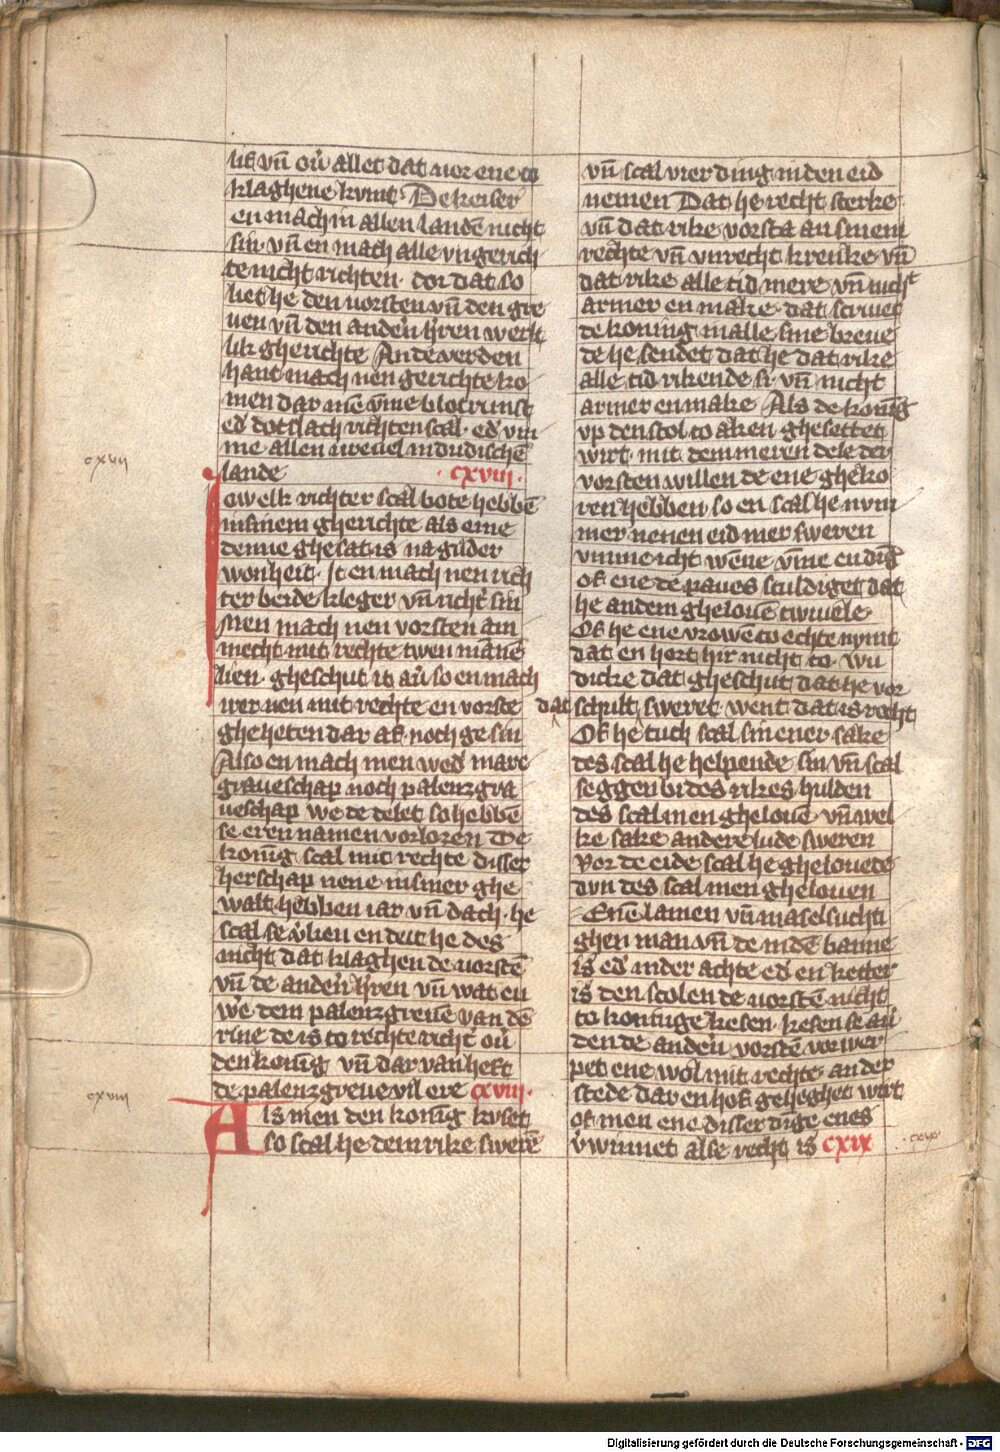 lik vn̄ ou̓ allet dat uor ene to
klaghene kvmt. De keiser
en mach in allen landē nicht
sin. vn̄ en mach alle vngerich
te nicht richten. dor dat so
liet he den uorsten vn̄ den gre
uen vn̄ den andern hren werlt
lik gherichte An de verden
hant mach nen gerichte ko
men dar mē vm̄e blotrunst
ed̓ dotslach richten scal. ed̓ vm
me allen vreuel in dudischē
lande cxviii.
Iowelk richter scal bote hebbē
in sinem gherichte als eme
denne ghesat is na gud̓er
wonheit. It en mach nen rich
ter beide kleger vn̄ richt̓ sin
Men mach nen vorsten am
mecht mit rechte twen mannē
lien. gheschut it au̓ so en mach
irer nen mit rechte en vorste
gheheten dar af. noch ge sin
Also en mach men wed̓ marc
graueschap noch palenzgra
ueschap we de delet so hebbē
se eren namen vorloren De
konīg scal mit rechte disser
herschap nene in siner ghe
walt hebben iar vn̄ dach. he
scal se v̓lien en deit he des
nicht dat klaghen de uorstē
vn̄ de andern hren vn̄ wat en
we dem palenzgreue van dē
rine de is to rechte richt̓ ou̓
den konīg vn̄ dar van heft
de palenzgreue vil ere cxviii.
Als men den konīg kvset
so scal he dem rike swerē
vn̄ scal vier ding in den eid
nemen Dat he recht sterke
vn̄ dat rike vorsta an sinem
rechte vn̄ vnrecht krenke vn̄
dat rike alle tid mere vn̄ nicht
armer en make. dat scriuet
de koning in alle sine breue
de he sendet dat he dat rike
alle tid rikende si vn̄ nicht
armer en make Als de konīg
vp den stol to aken ghesettet
wirt. mit dem meren dele der
vorsten willen de ene gheko
ren hebben so en scal he num
mer nenen eid mer sweren
vmme icht wēne vm̄e en dīg
of ene de paues sculdiget dat
he an dem ghelouē twiuele.
Of he ene vrowē to echte nymt
dat en hort hir nicht to. wu
dicke dat gheschut dat he vor
dat schrift sweret. went dat is recht
Of he tuch scal sin ener sake
des scal he helpende sin vn̄ scal
seggen bi des rikes hulden
des scal men ghelouē. vn̄ wel
ke sake andere lude sweren
Vor de eide scal he ghelouede
dvn des scal men ghelouen
Enē lamen vn̄ maselsuchti
ghen man vn̄ de in dē banne
is ed̓ in der achte ed̓ en ketter
is den scolen de uorstē nicht
to koninge kesen. kesen se au̓
den de anderē vorstē vorwer
pet ene wol mit rechte. an der
stede dar en hof geheghet wirt
of men ene disser dīge enes
v̓winnet alse recht is cxix
cxvii
cxviii
cxix
Digitalisierung gefördert durch die Deutsche Forschungsgemeinschaft - DFG